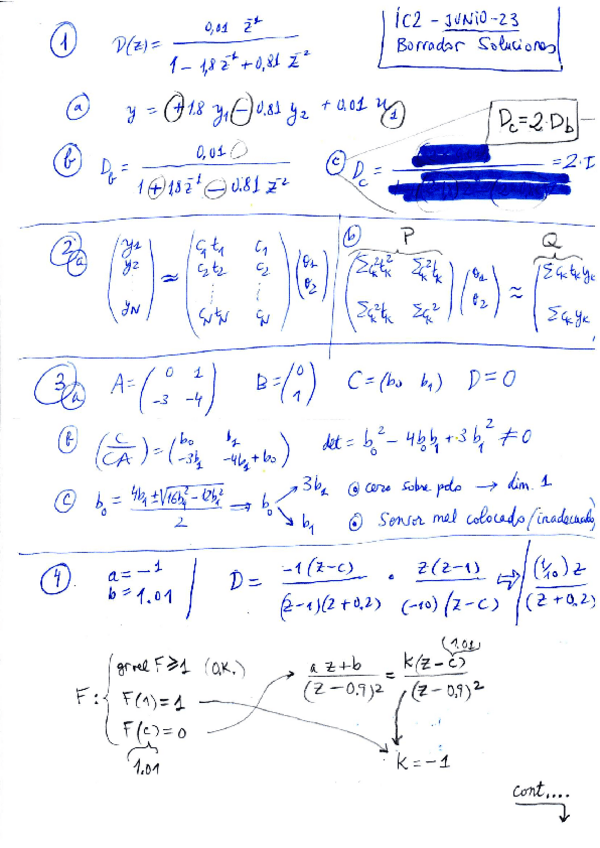 IC2 - JUNIO-23
Borrador Soluciones
1 D(z) = 0,01 z^-1 / (1 - 1,8 z^-1 + 0,81 z^-2)
a y = +1.8 y_1 - 0.81 y_2 + 0.01 u_1
D_c = 2·D_b
b D_b = 0,01 / (1 + 1.8 z^-1 - 0.81 z^-2)
c D_c = = 2·D
2 a (y_1 y_2 ⋮ y_N) ≈ (c_1t_1 c_1 c_2t_2 c_2 ⋮ ⋮ c_Nt_N c_N) (θ_1 θ_2)
b P Q
(Σc_k^2t_k^2 Σc_k^2t_k Σc_k^2t_k Σc_k^2) (θ_1 θ_2) ≈ (Σc_kt_ky_k Σc_ky_k
3 a A = (0 1 -3 -4) B = (0 1) C = (b_0 b_1) D = 0
b (C / CA) = (b_0 b_1 -3b_1 -4b_1+b_0) det = b_0^2 - 4b_0b_1 + 3b_1^2 ≠ 0
c b_0 = (4b_1 ± √(16b_1^2 - 12b_1^2)) / 2 → b_0
3b_1 cero sobre polo → dim. 1
b_1 Sensor mal colocado/(inadecuado)
4 a = -1
b = 1.01
D = -1(z-c) / (z-1)(z+0.2) · z(z-1) / (-10)(z-c) ⇒ (1/10) z / (z+0.2)
F: grado F ≥ 1 (O.K.)
F(1) = 1
F(c) = 0
1.01
a z + b / (z-0.9)^2 = k(z-c) / (z-0,9)^2
1.01
k = -1
cont....